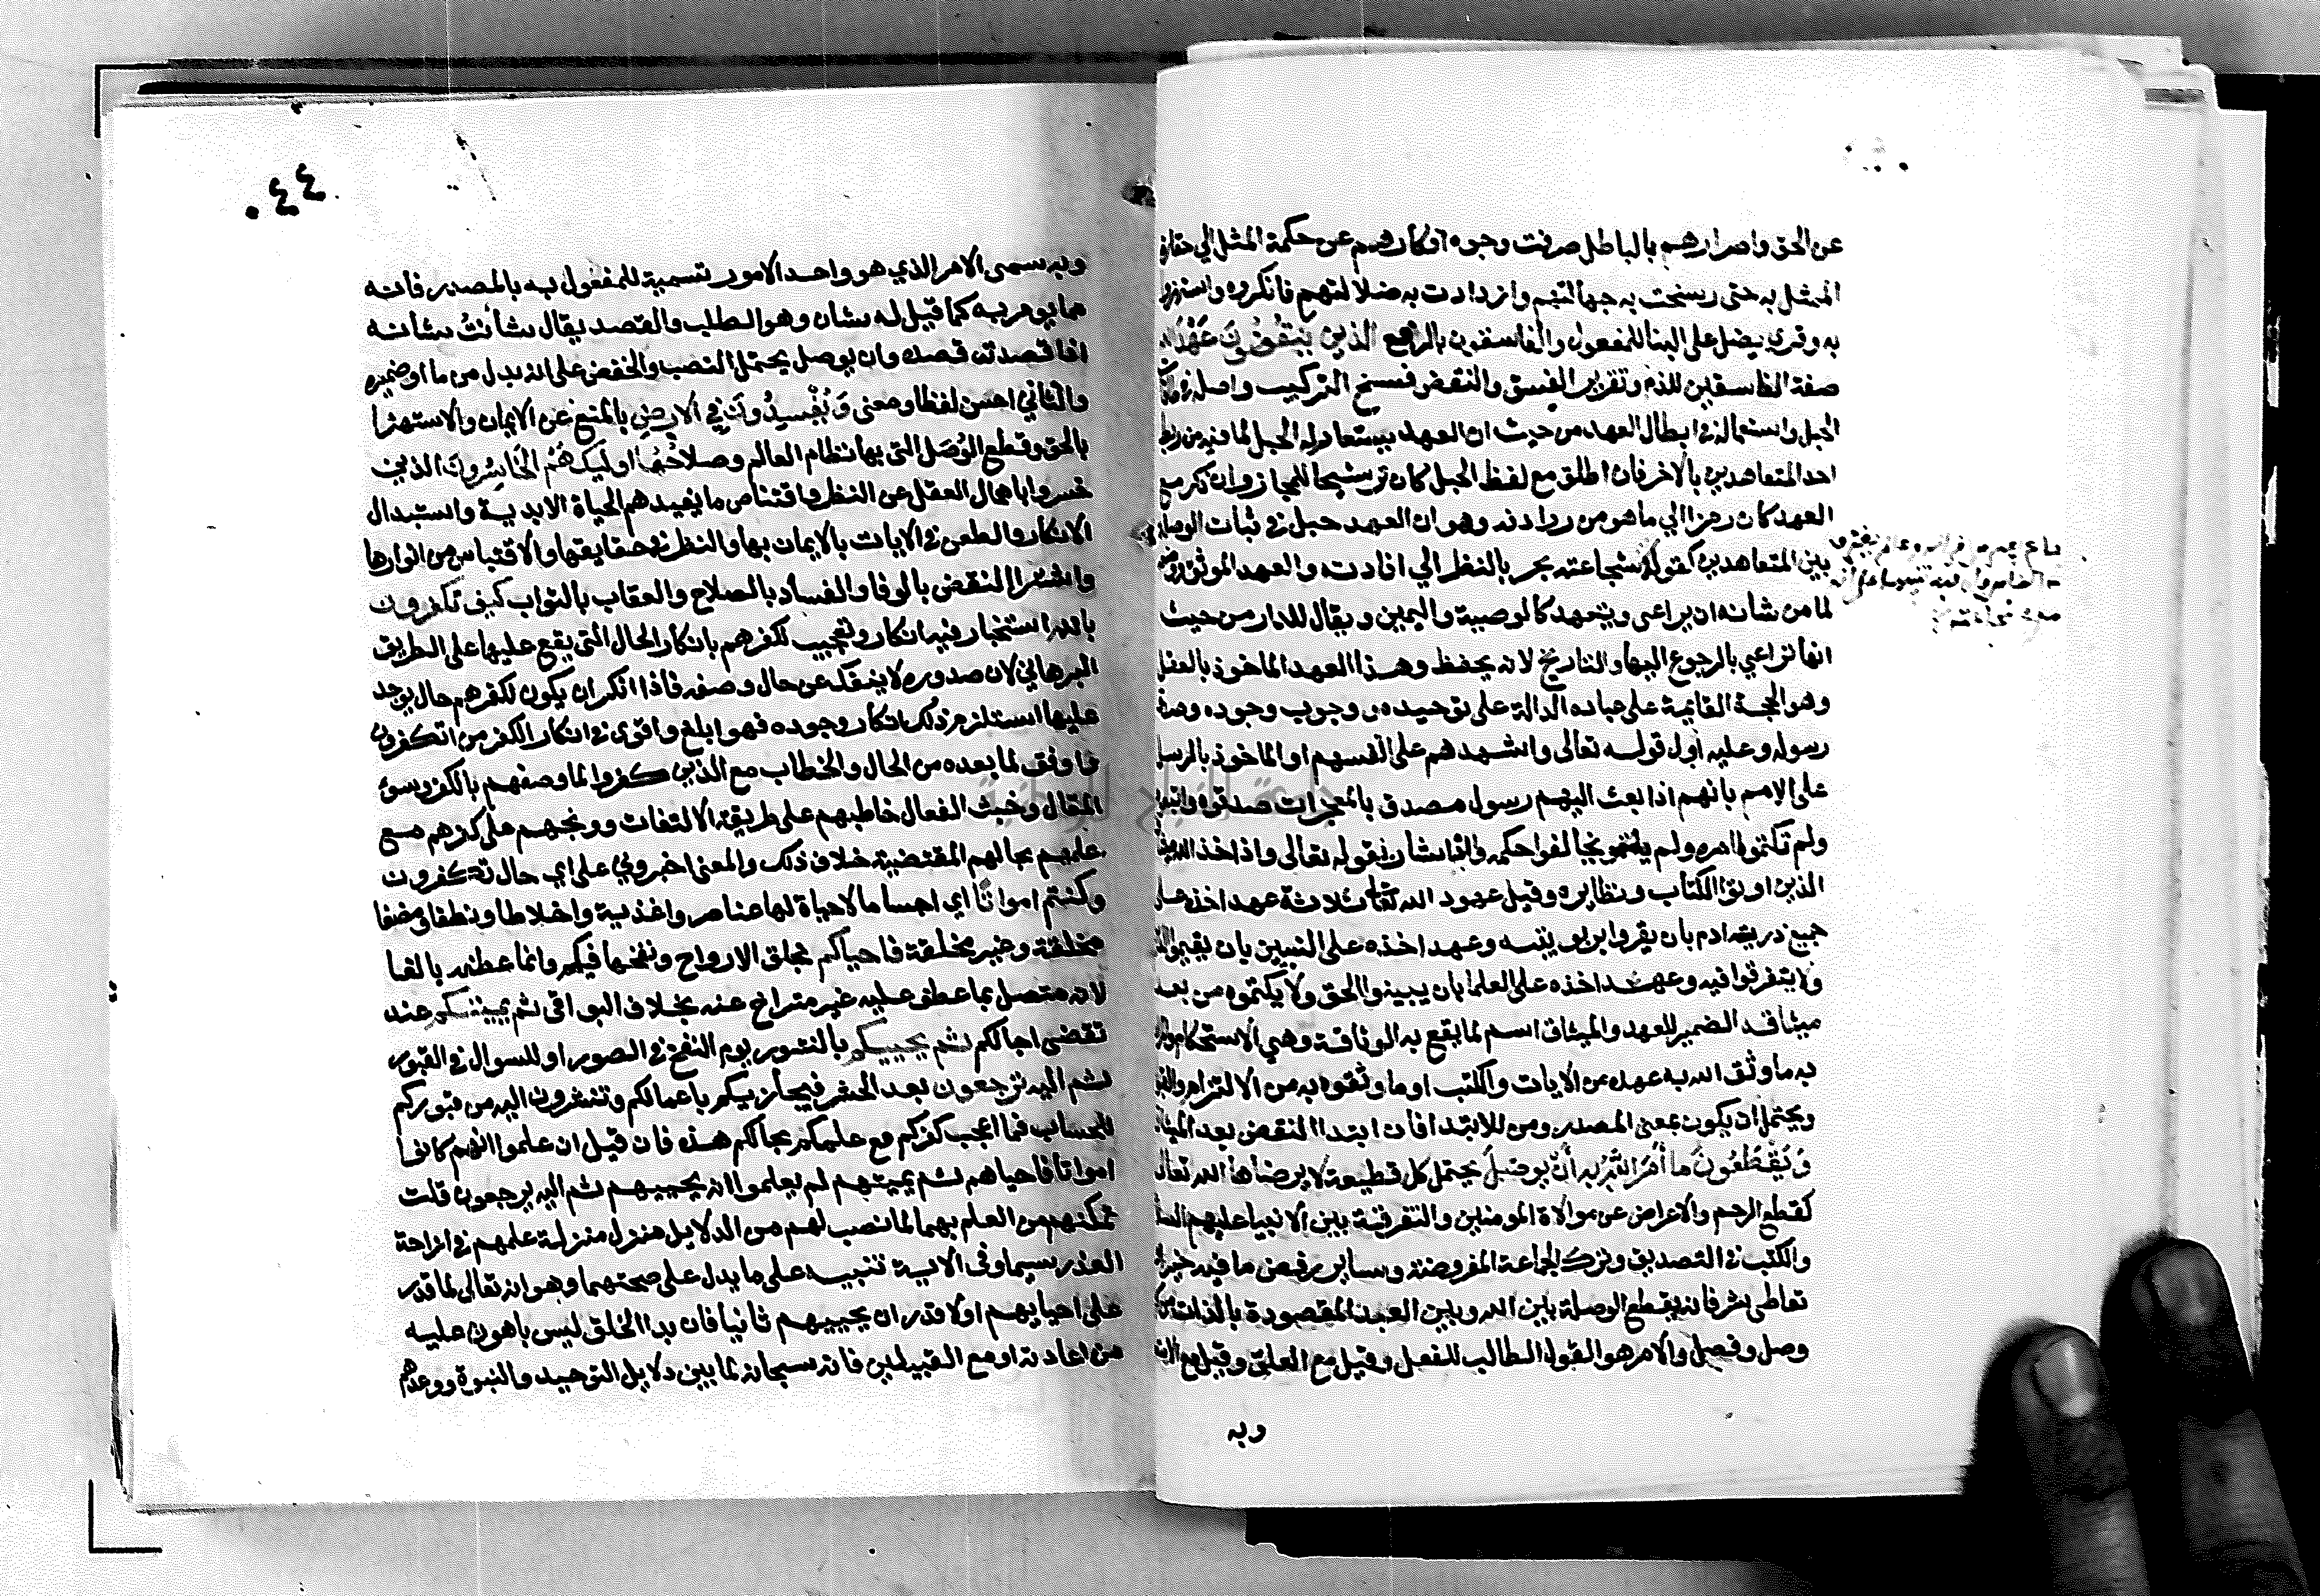 عن الحق واصرارهم بالباطل صرفت وجوه افكارهم عن حكمة المثل الي حقارة
الممثل به حتى رسخت به جهالتهم وازدادت به ضلالتهم فانكروه واستهزوا
به وقري يضل على البنا للمفعول والفاسقون بالرفع الذين ينقضون عهد الله
صفة الفاسقين للذم وتقرير الفسق والنقض فسخ التركيب واصله في طاقات
الحبل واستعماله في ابطال العهد من حيث ان العهد يستعار له الحبل لما فيه من ربط
احد المتعاهدين بالاخر فان اطلق مع لفظ الحبل كان ترشيحا للمجاز وان ذكر مع
العهد كان رمزا الي ما هو من روادفه وهو ان العهد حبل في ثبات الوصلة
بين المتعاهدين كقولك شجاع بحر بالنظر الي افادته والعهد الموثق ووضعه
لما من شانه ان يراعى ويتعهد كالوصية واليمين ويقال للدار من حيث
انها تراعي بالرجوع اليها والتاريخ لانه يحفظ وهذا العهد الماخوذ بالعقل
وهو الحجة القايمة على عباده الدالة على توحيده ووجوب وجوده وصدق
رسوله وعليه اول قوله تعالى واشهدهم على انفسهم او الماخوذ بالرسل
على الامم بانهم اذا بعث اليهم رسول مصدق بالمعجزات صدقوه واتبعوه
ولم يكتموا امره ولم يخالفوا حكمه واليه اشار بقوله تعالى واذ اخذ الله ميثاق
الذين اوتوا الكتاب ونظايره وقيل عهود الله تعالى ثلاثة عهد اخذه على
جميع ذرية ادم بان يقروا بربوبيته وعهد اخذه على النبيين بان يقيموا الدين
ولا يتفرقوا فيه وعهد اخذه على العلما بان يبينوا الحق ولا يكتموه من بعد
ميثاقه الضمير للعهد والميثاق اسم لما يقع به الوثاقة وهي الاستحكام والمراد
به ما وثق الله به عهده من الايات والكتب او ما وثقوه به من الالتزام والقبول
ويحتمل ان يكون بمعنى المصدر ومن للابتدا فان ابتدا النقض بعد الميثاق
ويقطعون ما امر الله به ان يوصل يحتمل كل قطيعة لا يرضاها الله تعالى
كقطع الرحم والاعراض عن موالاة المومنين والتفرقة بين الانبيا عليهم السلام
والكتب في التصديق وترك الجماعة المفروضة وساير ما فيه رفض خير او
تعاطى شر فانه يقطع الوصلة بين الله وبين العبد المقصودة بالذات من كل
وصل وفصل والامر هو القول الطالب للفعل وقيل مع العلو وقيل مع الاستعلا
وبه
٠٤٤
وبه سمى الامر الذي هو واحد الامور تسمية للمفعول به بالمصدر فانه
مما يومر به كما قيل له شان وهو الطلب والقصد يقال شأنتُ شانه
اذا قصدت قصده وان يوصل يحتمل النصب والخفض على انه بدل من ما او ضميره
والثاني احسن لفظا ومعنى وَيُفْسِدُونَ في الارض بالمنع عن الايمان والاستهزا
بالحق وقطع الوُصَل التي بها نظام العالم وصلاحها اوليك هُم الخَاسِرون الذين
خسروا باهمال العقل عن النظر واقتناص ما يفيدهم الحياة الابدية واستبدال
الانكار والطعن في الايات بالايمان بها والنظر في حقايقها والاقتباس من انوارها
واشترا النقض بالوفا والفساد بالصلاح والعقاب بالثواب كيف تكفرون
بالله استخبار فيه انكار وتعجيب لكفرهم بانكار الحال التي يقع عليها على الطريق
البرهاني لان صدوره لا ينفك عن حال وصفة فاذا انكر ان يكون لكفرهم حال يوجد
عليها استلزم ذلك انكار وجوده فهو ابلغ واقوى في انكار الكفر من اتكفرون
واوفق لما بعده من الحال والخطاب مع الذين كفروا لما وصفهم بالكفر وسو
المقال وخبث الفعال خاطبهم على طريقة الالتفات ووبخهم على كفرهم مع
علمهم بحالهم المقتضية خلاف ذلك والمعنى اخبروني على اي حال تكفرون
وكنتم امواتا اي اجساما لا حياة لها عناصر واغذية واخلاطا ونطفا ومضغا
مخلقة وغير مخلقة فاحياكم بخلق الارواح ونفخها فيكم وانما عطفه بالفا
لانه متصل بما عطف عليه غير متراخ عنه بخلاف البواقي ثم يميتكم عند
تقضى اجالكم ثم يحييكم بالنشور يوم النفخ في الصور او للسوال في القبور
ثم اليه ترجعون بعد الحشر فيجازيكم باعمالكم وتنشرون اليه من قبوركم
للحساب فما اعجب كفركم مع علمكم بحالكم هذه فان قيل ان علموا انهم كانوا
امواتا فاحياهم ثم يميتهم لم يعلموا انه يحييهم ثم اليه يرجعون قلت
تمكنهم من العلم بهما لما نصب لهم من الدلايل منزل منزلة علمهم في ازاحة
العذر سيما وفي الاية تنبيه على ما يدل على صحتهما وهو انه تعالى لما قدر
على احيايهم اولا قدر ان يحييهم ثانيا فان بدا الخلق ليس باهون عليه
من اعادته او مع القبيلين فانه سبحانه لما بين دلايل التوحيد والنبوة ووعدهم